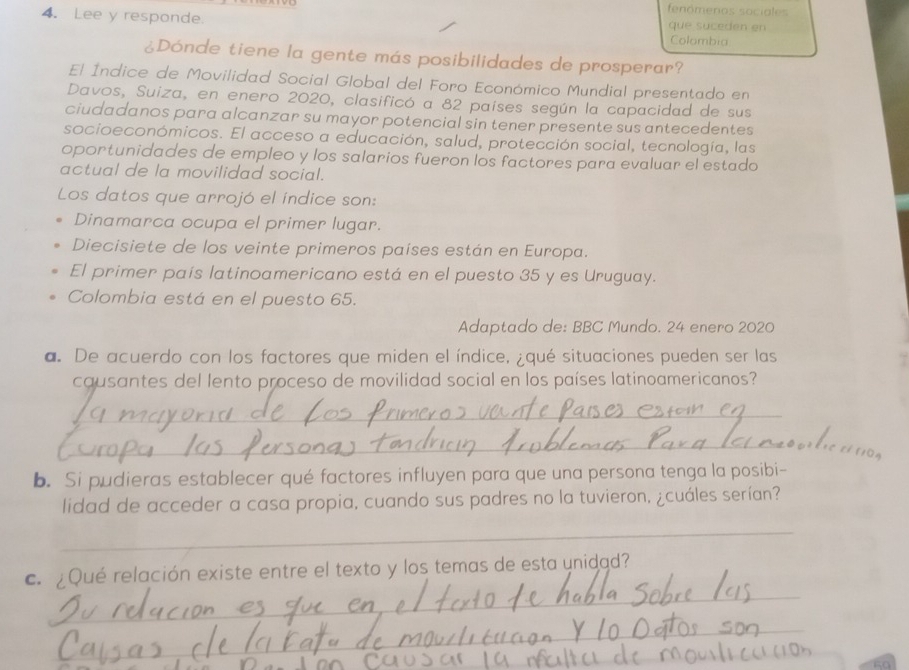 4. Lee y responde.
fenómenos sociales
que suceden en
Colombia
¿Dónde tiene la gente más posibilidades de prosperar?
El Índice de Movilidad Social Global del Foro Económico Mundial presentado en
Davos, Suiza, en enero 2020, clasificó a 82 países según la capacidad de sus
ciudadanos para alcanzar su mayor potencial sin tener presente sus antecedentes
socioeconómicos. El acceso a educación, salud, protección social, tecnología, las
oportunidades de empleo y los salarios fueron los factores para evaluar el estado
actual de la movilidad social.
Los datos que arrojó el índice son:
• Dinamarca ocupa el primer lugar.
• Diecisiete de los veinte primeros países están en Europa.
• El primer país latinoamericano está en el puesto 35 y es Uruguay.
• Colombia está en el puesto 65.
Adaptado de: BBC Mundo. 24 enero 2020
a. De acuerdo con los factores que miden el índice, ¿qué situaciones pueden ser las
causantes del lento proceso de movilidad social en los países latinoamericanos?
la mayoria de los Primeros vente Paises estan en
Europa las Personas tendrian Problemas Para la
b. Si pudieras establecer qué factores influyen para que una persona tenga la posibi-
lidad de acceder a casa propia, cuando sus padres no la tuvieron, ¿cuáles serían?
c. ¿Qué relación existe entre el texto y los temas de esta unidad?
Su relacion es que en el texto te habla Sobre las
Causas de la de Y lo Datos son
causar la de